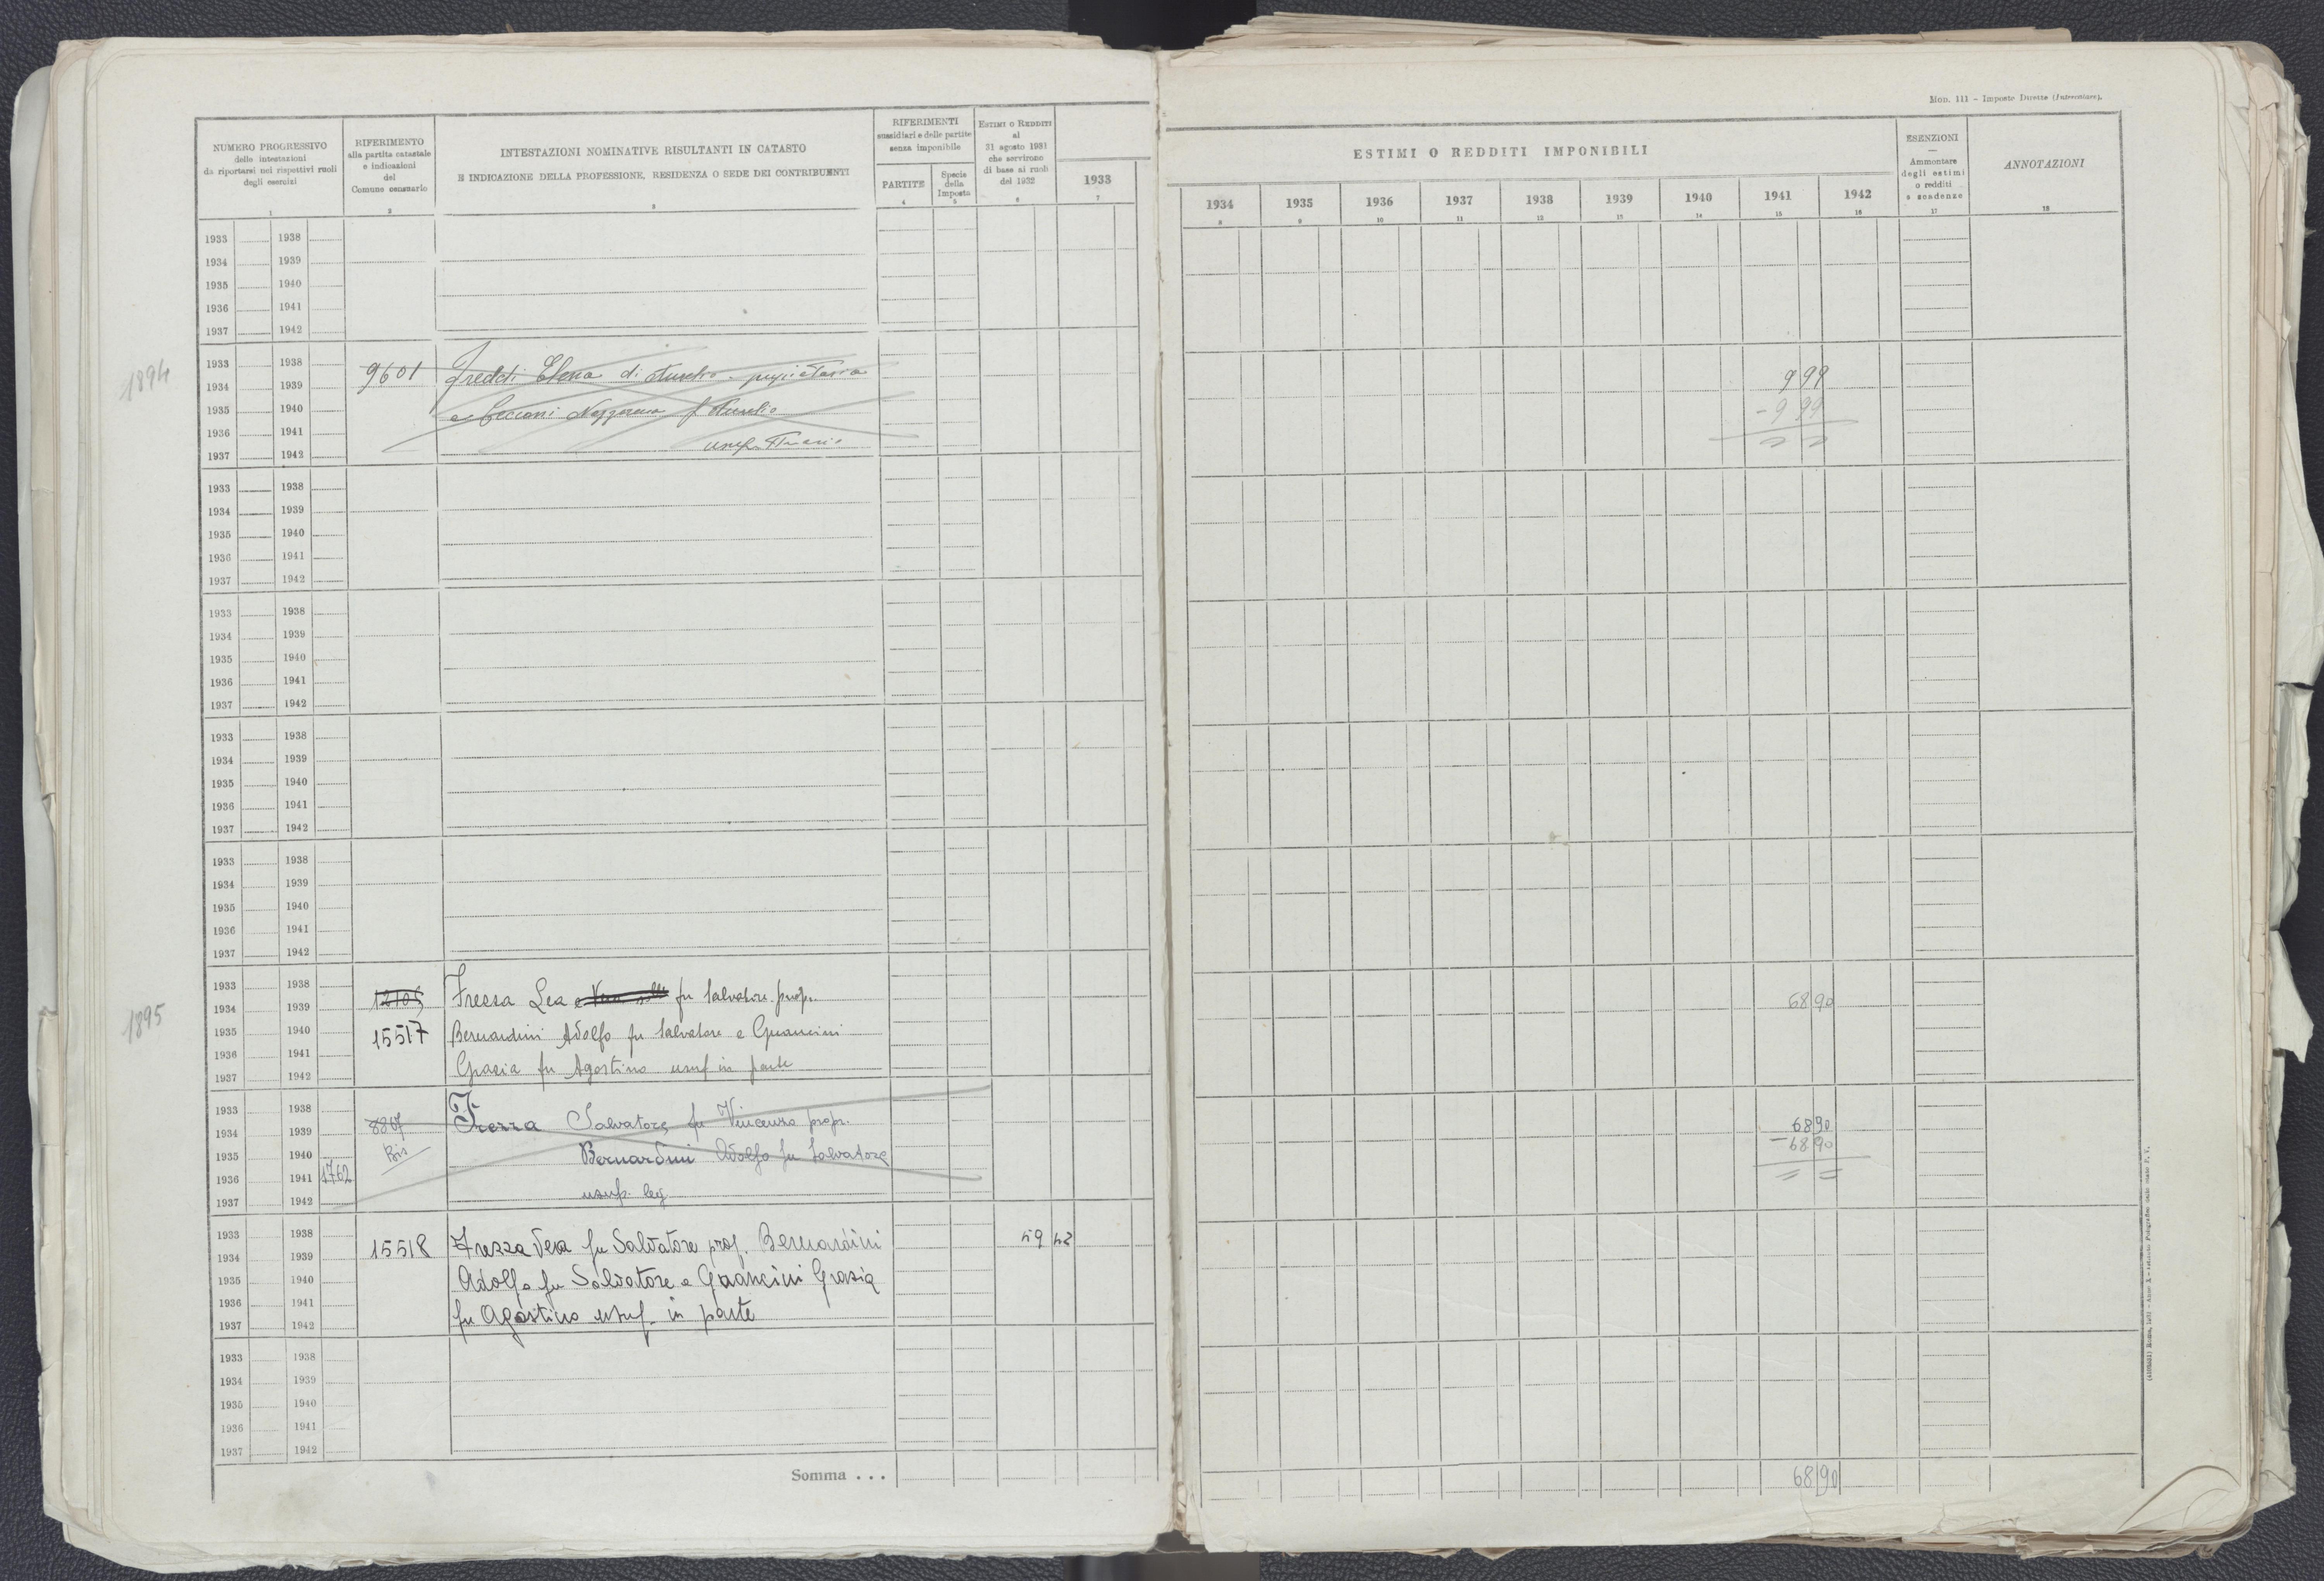 Mod. 111 - Imposte Dirette (Intercalare).
NUMERO PROGRESSIVO
delle intestazioni
da riportarsi nei rispettivi ruoli
degli esercizi
1
RIFERIMENTO
alla partita catastale
e indicazioni
del
Comune censuario
2
INTESTAZIONI NOMINATIVE RISULTANTI IN CATASTO
E INDICAZIONE DELLA PROFESSIONE, RESIDENZA O SEDE DEI CONTRIBUENTI
3
RIFERIMENTI
sussidiari e delle partite
senza imponibile
PARTITE
4
Specie
della
Imposta
5
ESTIMI O REDDITI
al
31 agosto 1931
che servirono
di base ai ruoli
del 1932
6
1933
7
ESTIMI O REDDITI IMPONIBILI
1934 1935 1936 1937 1938 1939 1940 1941 1942
8 9 10 11 12 13 14 15 16
ESENZIONI
—
Ammontare
degli estimi
o redditi
e scadenze
17
ANNOTAZIONI
18
1933 1938
1934 1939
1935 1940
1936 1941
1937 1942
1894
1933 1938
1934 1939
1935 1940
1936 1941
1937 1942
9601
Freddi Elena di Aurelio proprietaria
e Cecconi Nazzareno f Aurelio
usufruttuario
9 99
- 9 99
1933 1938
1934 1939
1935 1940
1936 1941
1937 1942
1933 1938
1934 1939
1935 1940
1936 1941
1937 1942
1933 1938
1934 1939
1935 1940
1936 1941
1937 1942
1933 1938
1934 1939
1935 1940
1936 1941
1937 1942
1895
1933 1938
1934 1939
1935 1940
1936 1941
1937 1942
15517
Frezza Lea fu Salvatore prop.
Bernardini Adolfo fu Salvatore e Guancini
Grazia fu Agostino usuf in parte
68 90
1933 1938
1934 1939
1935 1940
1936 1941 1762
1937 1942
8867
Bis
Frezza Salvatore fu Vincenzo propr.
Bernardini Adolfo fu Salvatore
usuf. leg.
68 90
- 68 90
= =
1933 1938
1934 1939
1935 1940
1936 1941
1937 1942
15518
Frezza Vera fu Salvatore prop. Bernardini
Adolfo fu Salvatore e Guancini Grazia
fu Agostino usuf. in parte
59 42
1933 1938
1934 1939
1935 1940
1936 1941
1937 1942
Somma . . .
68 90